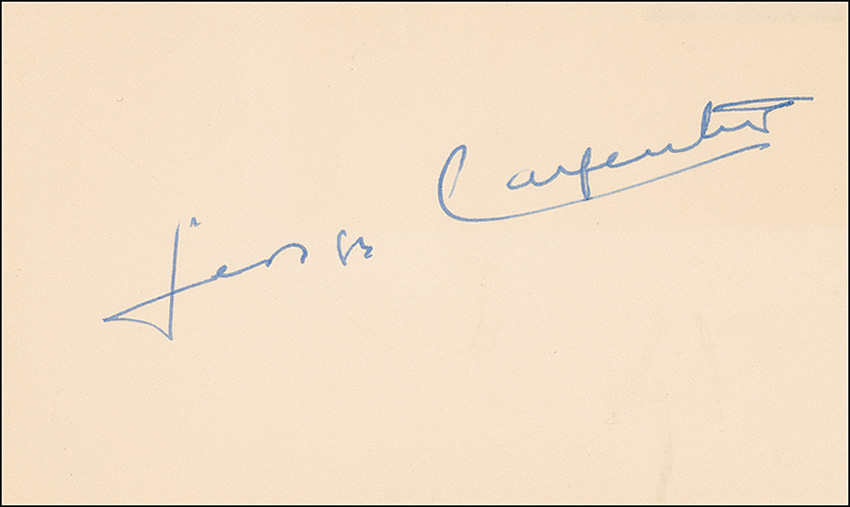 Georges Carpentier